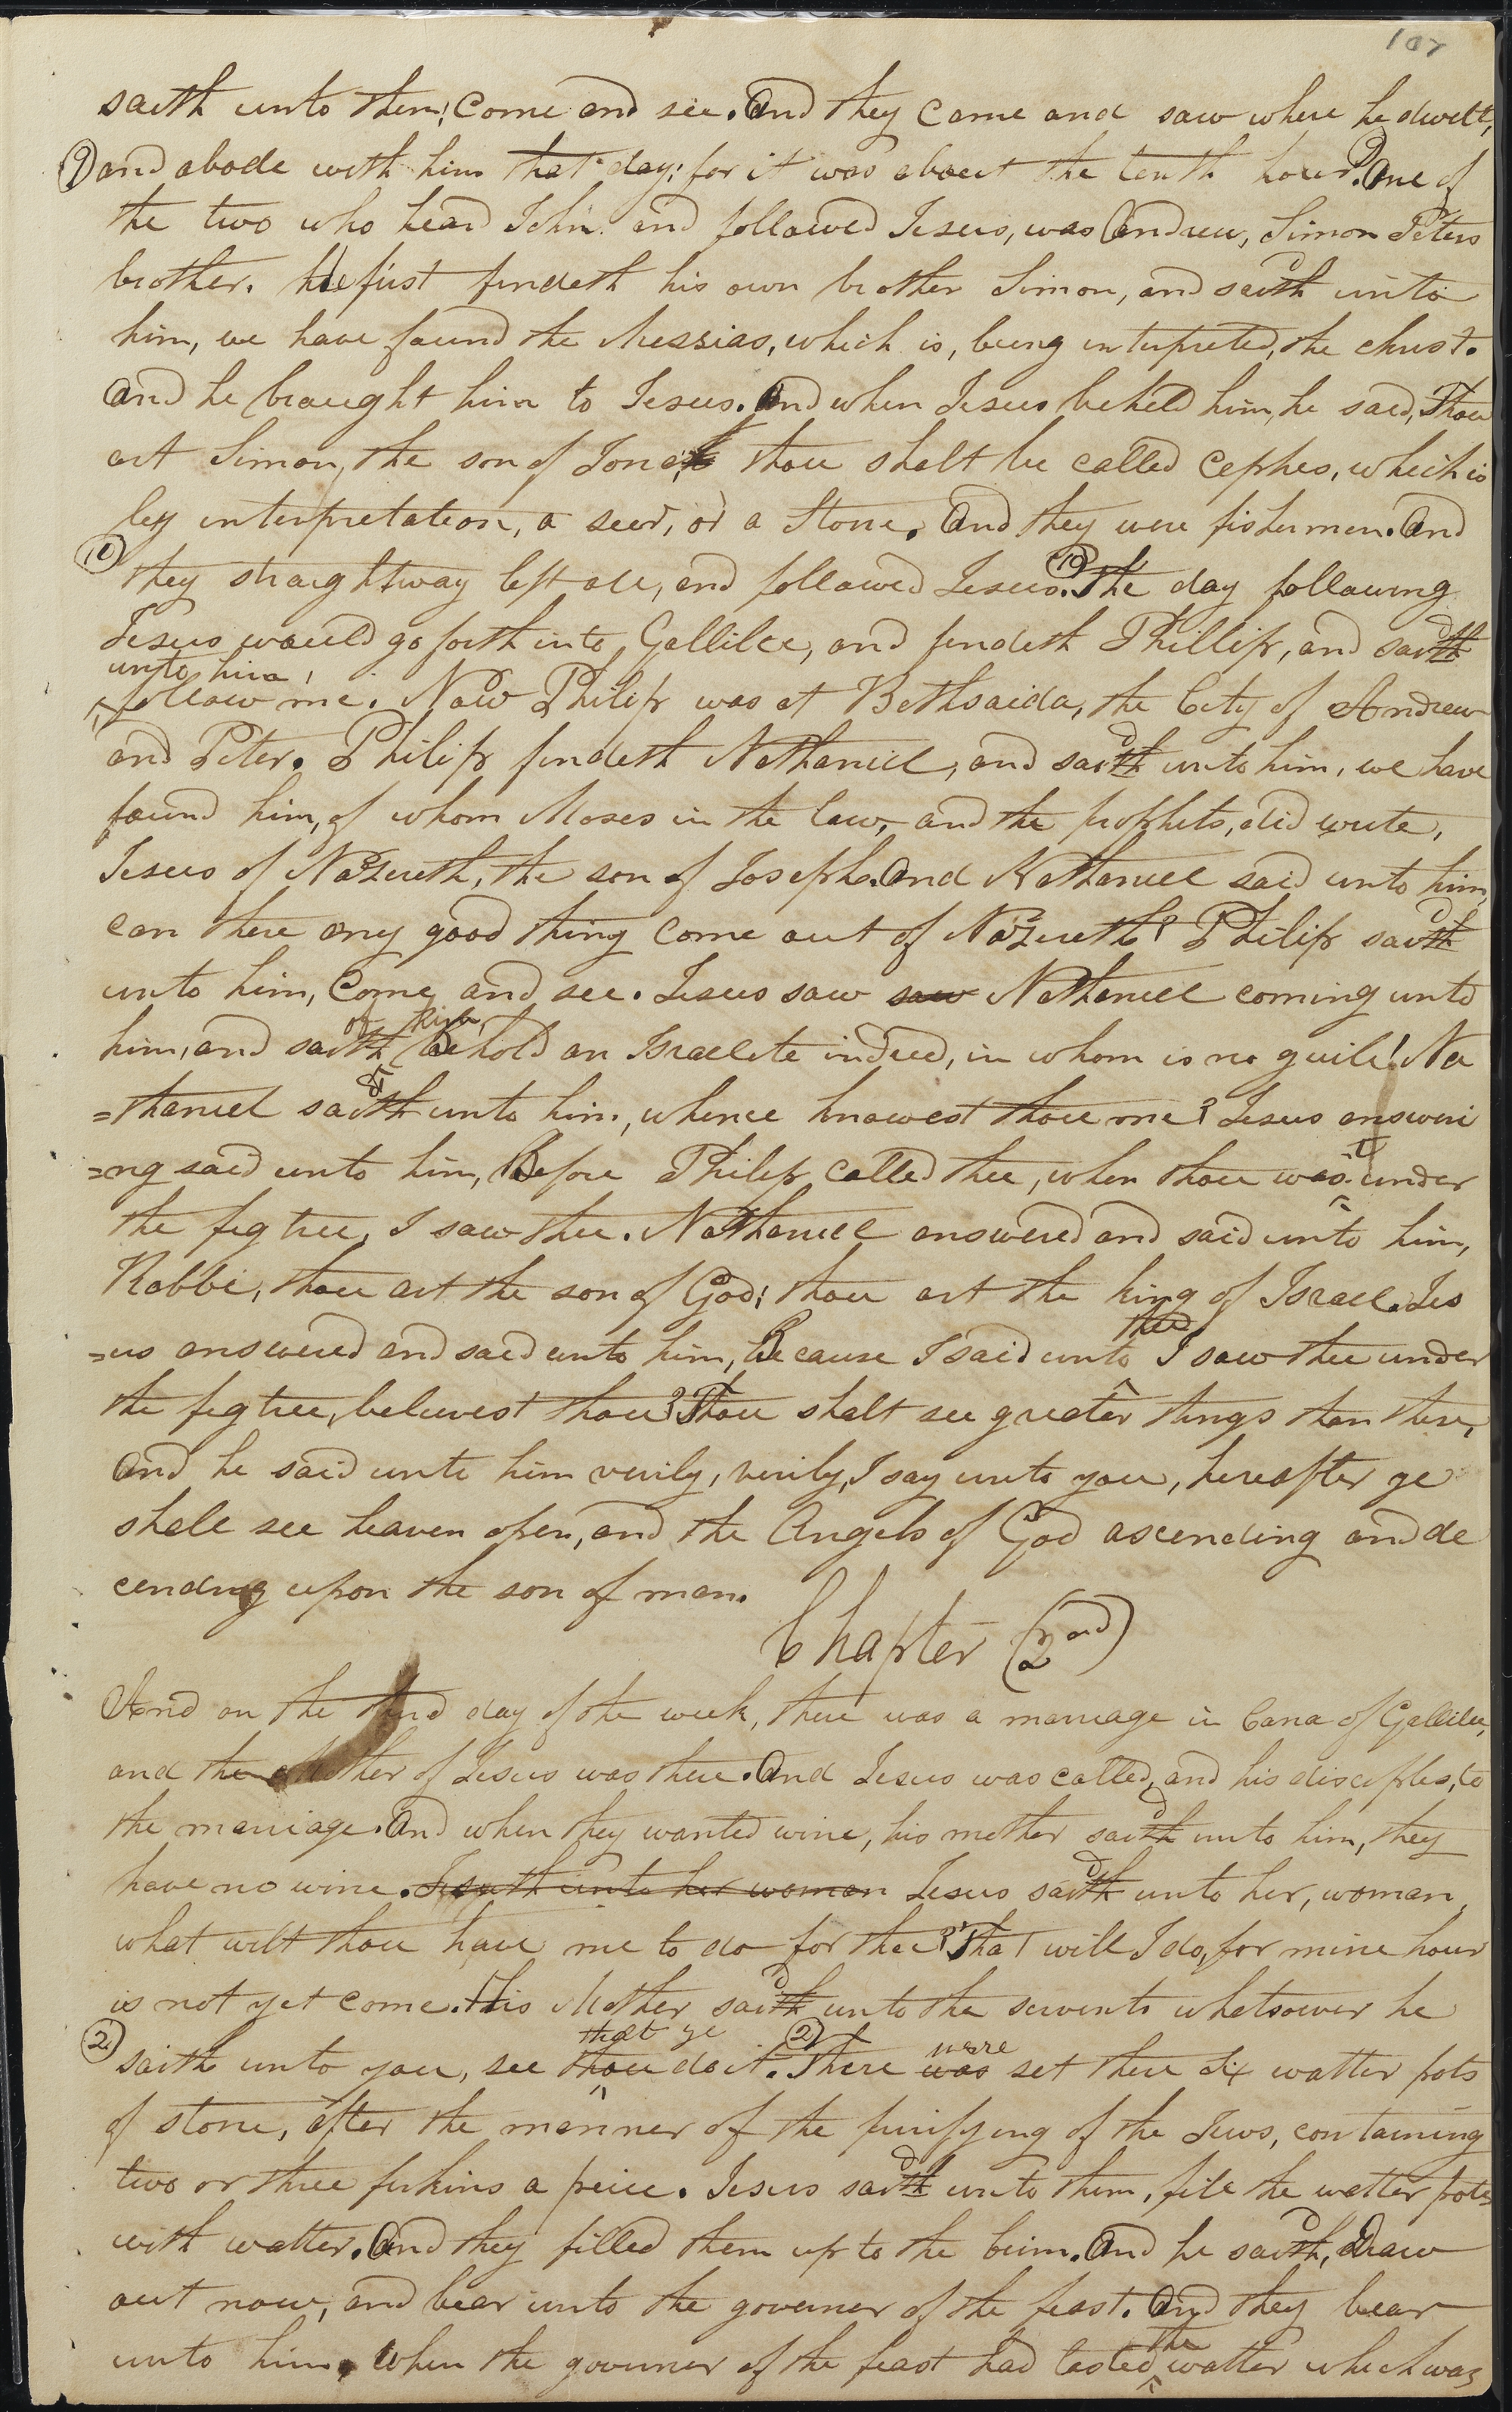 107
saith unto them; Come and see. And they came and saw where he dwelt,
(9) and abode with him that day; for it was about the tenth hour. (9) One of
the two who heard John and followed Jesus, was Andrew, Simon Peters
brother. He first findeth his own brother Simon, and saith unto
him, we have found the Messias, which is, being interpreted, the christ.
And he braught him to Jesus. And when Jesus beheld him, he said, Thou
art Simon, the son of Jona, thou shalt be called cephes, which is
by interpretation, a seer, or a Stone. And they were fishermen. And
(10) they straightway left all, and followed Jesus. (10) The day following
Jesus would go forth into Gallilee, and findeth Phillip, and saith
unto him,
follow me. Now Philip was at Bethsaida, the City of Andrew
and Peter. Philip findeth Nathaniel, and saith unto him, we have
found him, of whom Moses in the law, and the prophits, did write,
Jesus of Nazereth, the son of Joseph. And Nathaniel said unto him,
can there any good thing come out of Nazereth? Philip saith
unto him, Come and see. Jesus saw saw Nathaniel coming unto
of him,
him, and saith Behold an Israelite indeed, in whom is no guile! Na
=thaniel saith unto him, whence knowest thou me? Jesus answeri
=ng said unto him, Before Philip called thee, when thou wast under
the fig tree, I saw thee. Nathaniel answered and said unto him,
Rabbi, thou art the son of God; thou art the king of Israel. Jes
thee
=us answered and said unto him, Because I said unto I saw thee under
the fig tree, believest thou? Thou shalt see greater things than these,
And he said unto him verily, verily, I say unto you, hereafter ye
shall see heaven open, and the Angels of God ascending and de
cending upon the son of man.
Chapter (2nd)
And on the third day of the week, there was a marriage in Cana of Gallilee,
and the Mother of Jesus was there. And Jesus was called, and his disciples, to
the marriage. And when they wanted wine, his mother saith unto him, they
have no wine. Jesus saith unto her, woman,
what wilt thou have me to do for thee? That will I do, for mine hour
is not yet come. His Mother saith unto the servents whatsoever he
that ye were
(2) saith unto you, see thou do it. (2) There was set there six watter pots
of stone, after the manner of the purifying of the Jews, containing
two or three firkins a peice. Jesus saith unto them, fill the watter pots
with watter. And they filled them up to the brim. And he saith, draw
out now, and bear unto the governer of the feast. And they bear
the
unto him. When the governer of the feast had tasted watter which was